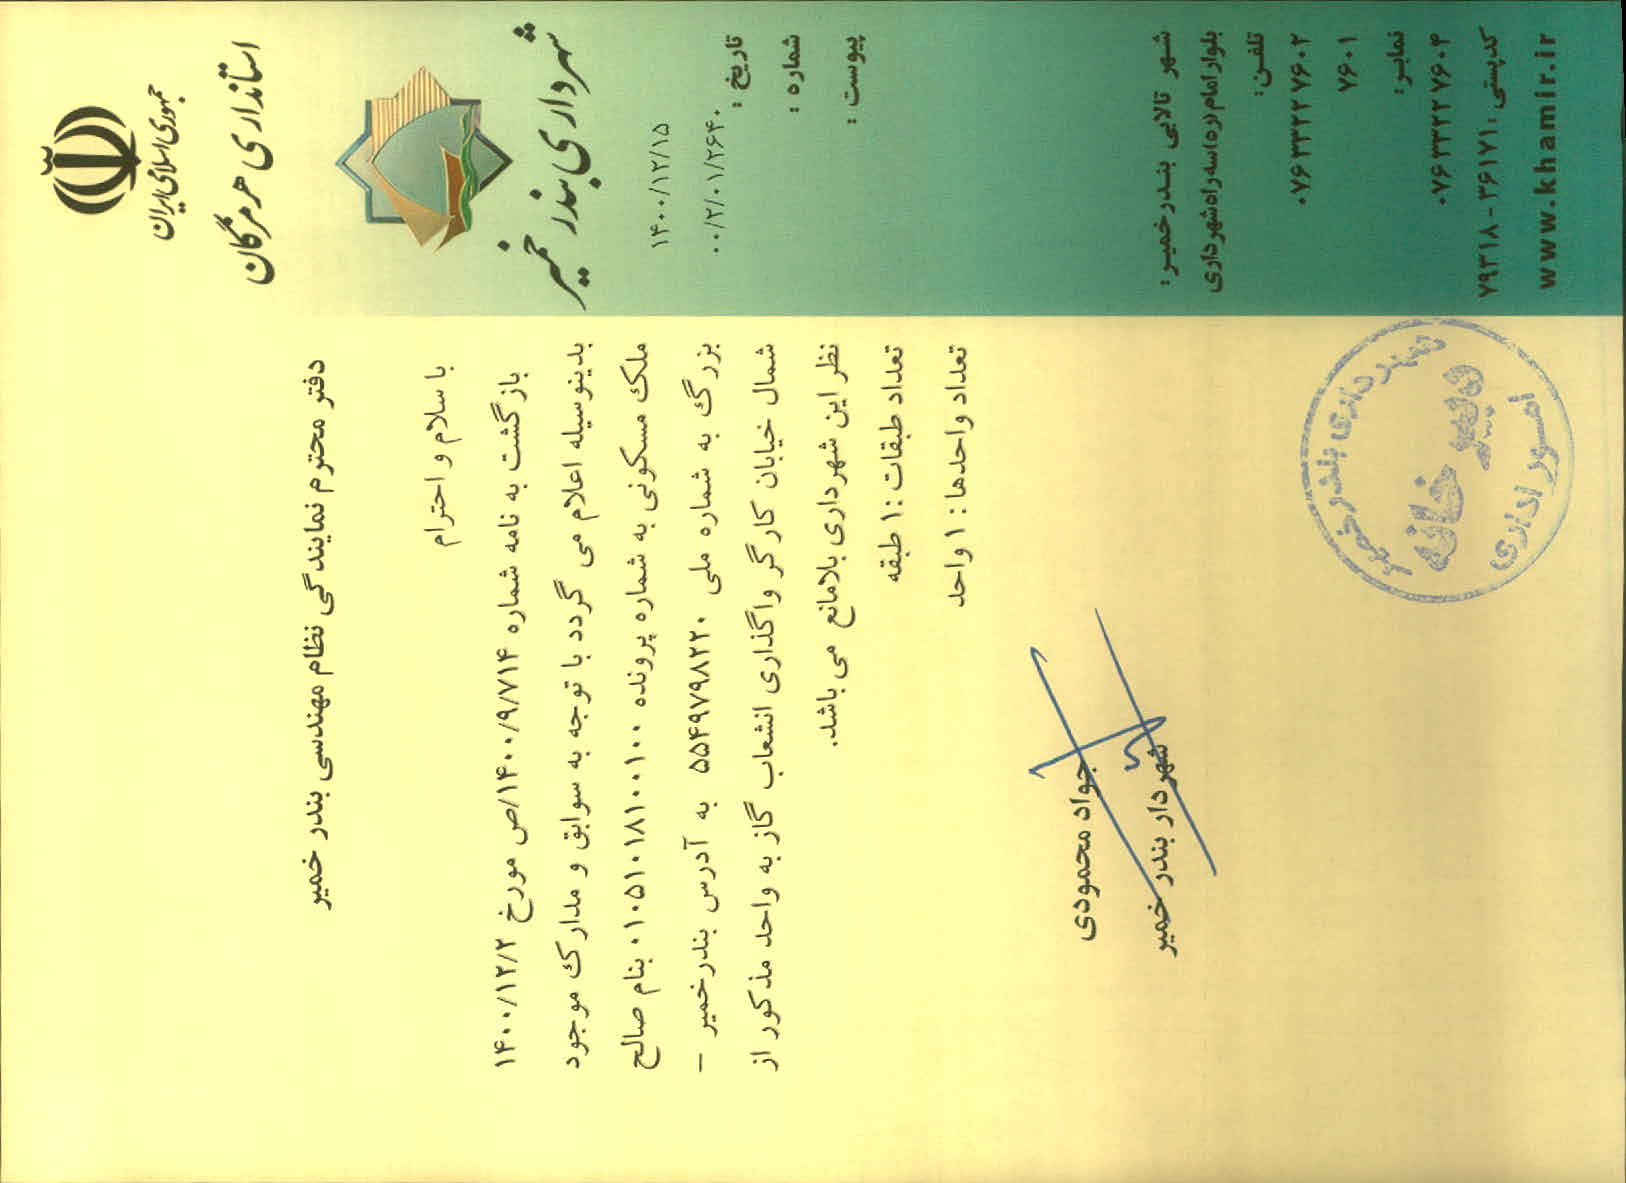 جمهوری اسلامی ایران
استانداری هرمزگان
شهرداری بندر خمیر
۱۴۰۰/۱۲/۱۵
۰۰/۲/۰۱/۲۶۴۰
تاریخ :
شماره :
پیوست :
دفتر محترم نمایندگی نظام مهندسی بندر خمیر
با سلام و احترام
بازگشت به نامه شماره ۱۴۰۰/۹/۷۱۴/ص مورخ ۱۴۰۰/۱۲/۲
بدینوسیله اعلام می گردد با توجه به سوابق و مدارک موجود
ملک مسکونی به شماره پرونده ۰۱۰۵۱۰۱۸۱۰۰۱۰۰ بنام صالح
بزرگ به شماره ملی ۵۵۴۹۷۹۸۲۲۰ به آدرس بندرخمیر –
شمال خیابان کارگر واگذاری انشعاب گاز به واحد مذکور از
نظر این شهرداری بلامانع می باشد.
تعداد طبقات :۱ طبقه
تعداد واحدها : ۱ واحد
جواد محمودی
شهردار بندر خمیر
شهرداری بندر خمیر
دبیرخانه
امور اداری
شهر تالابی بندرخمیر:
بلوار امام(ره)سه راه شهرداری
تلفن:
۰۷۶۳۳۲۲۷۶۰۲
۷۶۰۱
نمابر:
۰۷۶۳۳۲۲۷۶۰۴
کدپستی: ۳۶۱۷۱-۷۹۳۱۸
www.khamir.ir